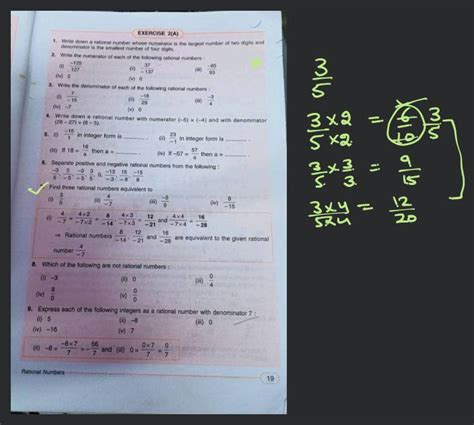 EXERCISE 2(A)
1. Write down a rational number whose numerator is the largest number of two digits and
denominator is the smallest number of four digits.
2. Write the numerator of each of the following rational numbers :
(i) -125/127 (ii) 37/-137 (iii) -85/93
(iv) 2 (v) 0
3. Write the denominator of each of the following rational numbers :
(i) 7/-15 (ii) -18/29 (iii) -3/4
(iv) -7 (v) 0
4. Write down a rational number with numerator (-5) × (-4) and with denominator
(28 - 27) × (8 - 5).
5. (i) -15/1 in integer form is (ii) 23/-1 in integer form is
(iii) If 18 = 18/a then a = (iv) If -57 = 57/a then a =
6. Separate positive and negative rational numbers from the following :
7. Find three rational numbers equivalent to
(i) 3/5 (ii) 4/-7 (iii) -5/9 (iv) 8/-15
(ii) 4/-7 = 4×2/-7×2 = 8/-14, 4×3/-7×3 = 12/-21 and 4×4/-7×4 = 16/-28
⇒ Rational numbers 8/-14, 12/-21 and 16/-28 are equivalent to the given rational
number 4/-7
8. Which of the following are not rational numbers :
(i) -3 (ii) 0 (iii) 0/4
(iv) 8/0 (v) 0/0
9. Express each of the following integers as a rational number with denominator 7 :
(i) 5 (ii) -8 (iii) 0
(iv) -16 (v) 7
(ii) -8 = -8×7/7 = -56/7 and (iii) 0 = 0×7/7 = 0/7
Rational Numbers
19
3/5
3×2/5×2 = 6/10 3/5
3/5 × 3/3 = 9/15
3×4/5×4 = 12/20